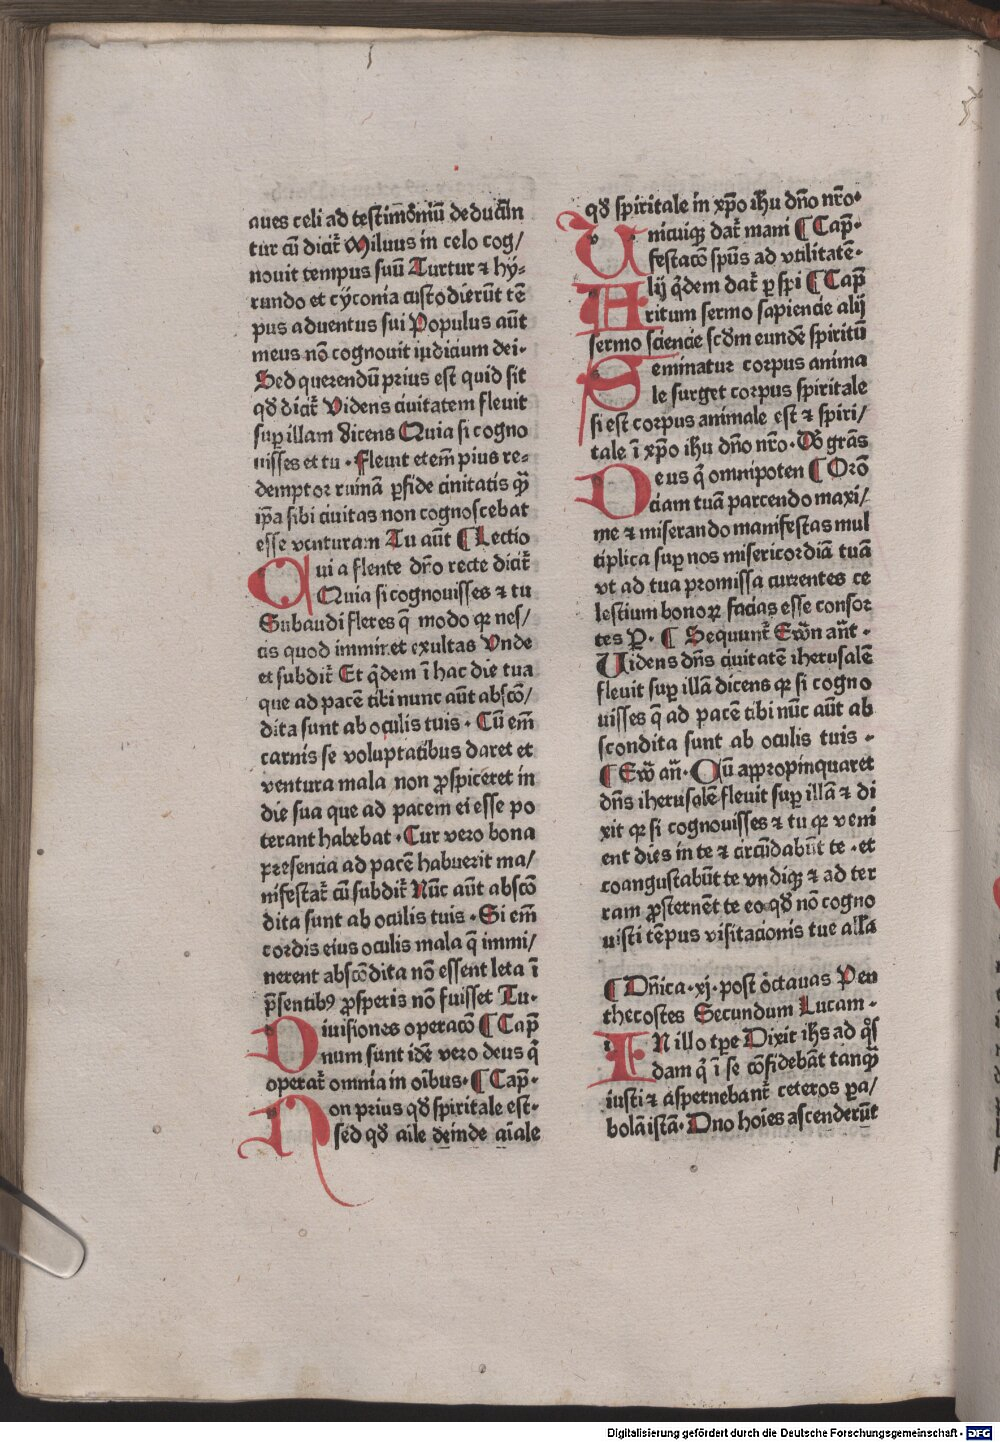 aues celi ad testimoniū deducūn
tur cū dicit̄ Miluus in celo cog/
nouit tempus suū Turtur ⁊ hy-
rundo et cyconia custodierūt tē
pus aduentus sui Populus aūt
meus nō cognouit iudicium dei·
Sed querendū prius est quid sit
qð dicit̄ Videns ciuitatem fleuit
suꝑ illam dicens Quia si cogno
uisses et tu · Fleuit etem̄ pius re-
demptor ruinā ꝑfide ciuitatis qm̄
ip̄a sibi ciuitas non cognoscebat
esse venturam Tu aūt ¶ Lectio
Qui a flente dn̄o recte dicit̄
Quia si cognouisses ⁊ tu
Subaudi fleres q̄ modo qr nes/
cis quod imminet exultas Vnde
et subdit̄ Et q̄dem ī hac die tua
que ad pacē tibi nunc aūt abscō/
dita sunt ab oculis tuis · Cū em̄
carnis se voluptatibus daret et
ventura mala non ꝓspiceret in
die sua que ad pacem ei esse po
terant habebat · Cur vero bona
presencia ad pacē habuerit ma/
nifestat̄ cū subdit̄ Nūc aūt abscō
dita sunt ab oculis tuis · Si em̄
cordis eius oculis mala q̄ immi/
nerent abscōdita nō essent leta ī
p̄sentibꝰ ꝓsperis nō fuisset Tu·
Diuisiones operacō ¶ Cap̄
num sunt idē vero deus q̄
operat̄ omnia in oībus · ¶ Cap̄·
Non prius qð spiritale est·
sed qð aīale deinde aīale
qð spiritale in xp̄o ih̄u dn̄o nr̄o·
Vnicuiqꝫ dat̄ mani ¶ Cap̄·
festacō sp̄us ad vtilitatē·
Alij q̄dem dat̄ ꝑ sp̄i ¶ Cap̄
ritum sermo sapiencie alij
sermo sciencie scðm eundē spiritū
Seminatur corpus anima
le surget corpus spiritale
si est corpus animale est ⁊ spiri/
tale ī xp̄o ih̄u dn̄o nr̄o · Dō gr̄as
Deus q̄ omnipoten ¶ Orō
ciam tuā parcendo maxi/
me ⁊ miserando manifestas mul
tiplica suꝑ nos misericordiā tuā
vt ad tua promissa currentes ce
lestium bonoꝝ facias esse consor
tes P̄· ¶ Sequunt̄ Ewn̄ ant̄ ·
Videns dn̄s ciuitatē iherusalē
fleuit suꝑ illā dicens qr si cogno
uisses q̄ ad pacē tibi nūc aūt ab
scondita sunt ab oculis tuis ·
¶ Ew̄ an̄· Cū appropinquaret
dn̄s iherusalē fleuit suꝑ illā ⁊ di
xit qr si cognouisses ⁊ tu qr veni
ent dies in te ⁊ circūdabūt te · et
coangustabūt te vndiqꝫ ⁊ ad ter
ram ꝓsternēt te eo qð nō cogno
uisti tēpus visitacionis tue all̄a
¶ Dn̄ica · xj · post octauas Pen
thecostes Secundum Lucam ·
IN illo tp̄e Dixit ih̄s ad q̊s
dam q̄ ī se cōfidebāt tanqꝫ̄
iusti ⁊ aspernebant̄ ceteros pa/
bolā istā · Duo hoīes ascenderūt
Digitalisierung gefördert durch die Deutsche Forschungsgemeinschaft - DFG